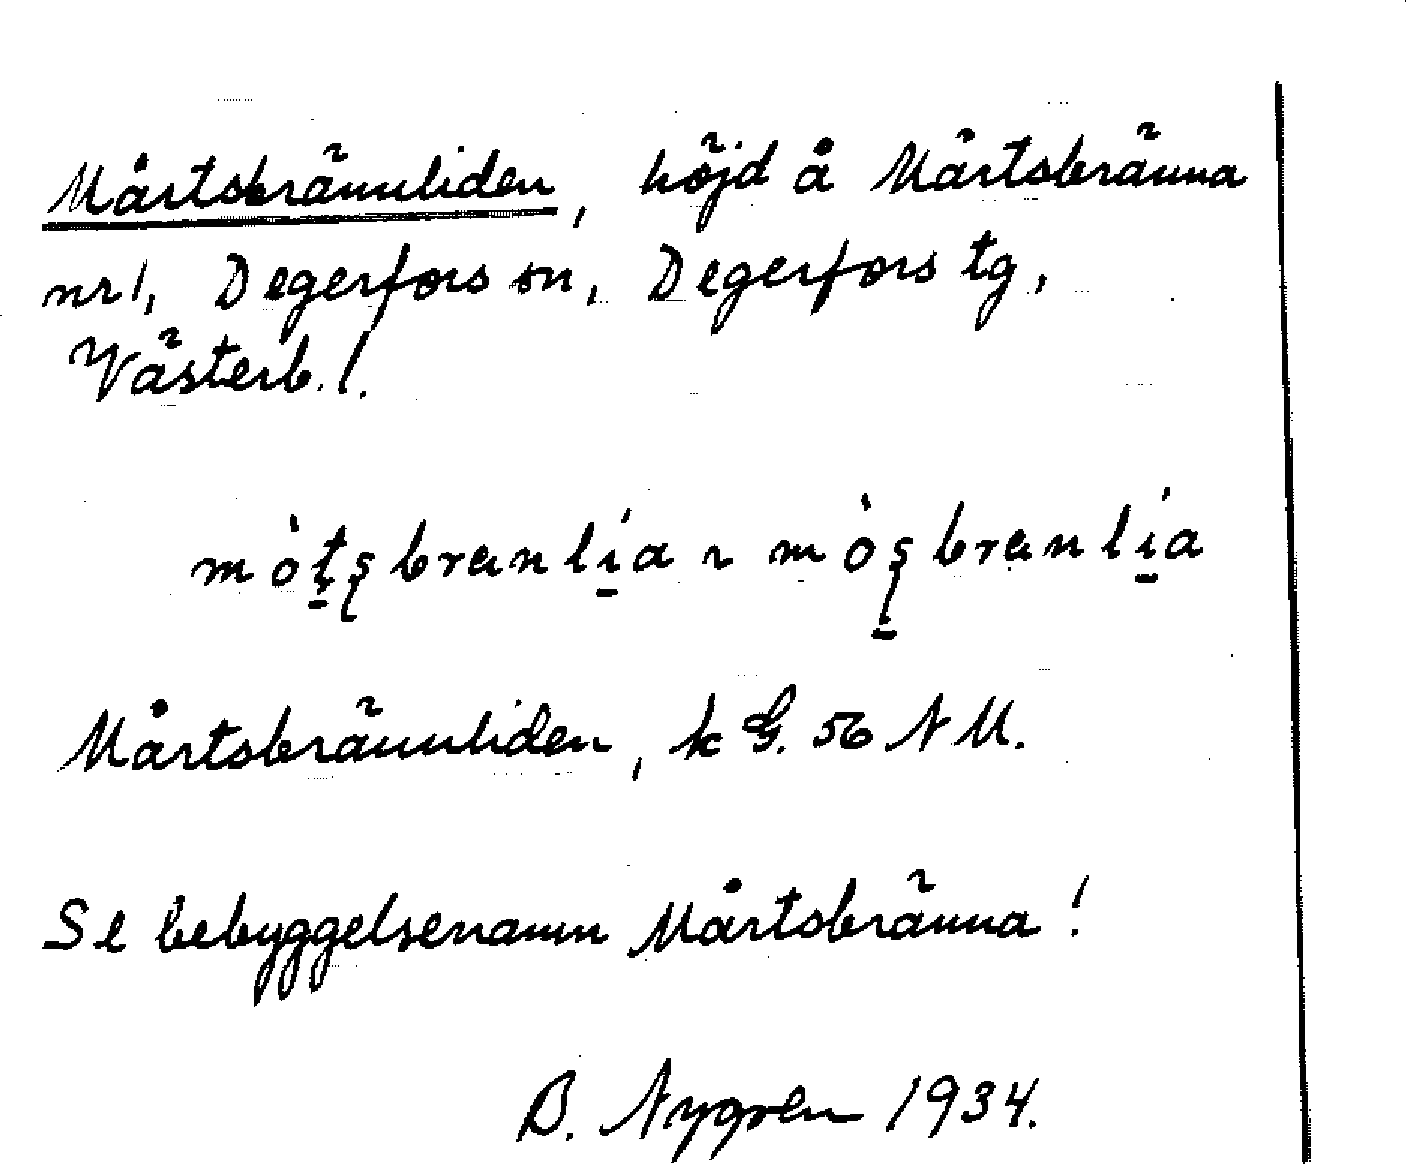 Mårtsbrännliden, höjd å Mårtsbränna
nr 1, Degerfors sn, Degerfors tg,
Västerb. l.
mò̱tʂbranlí̱a ~ mòʂ̱branlí̱a
Mårtsbrännliden, k G. 56 N M.
Se bebyggelsenamn Mårtsbränna!
B. Nygren 1934.